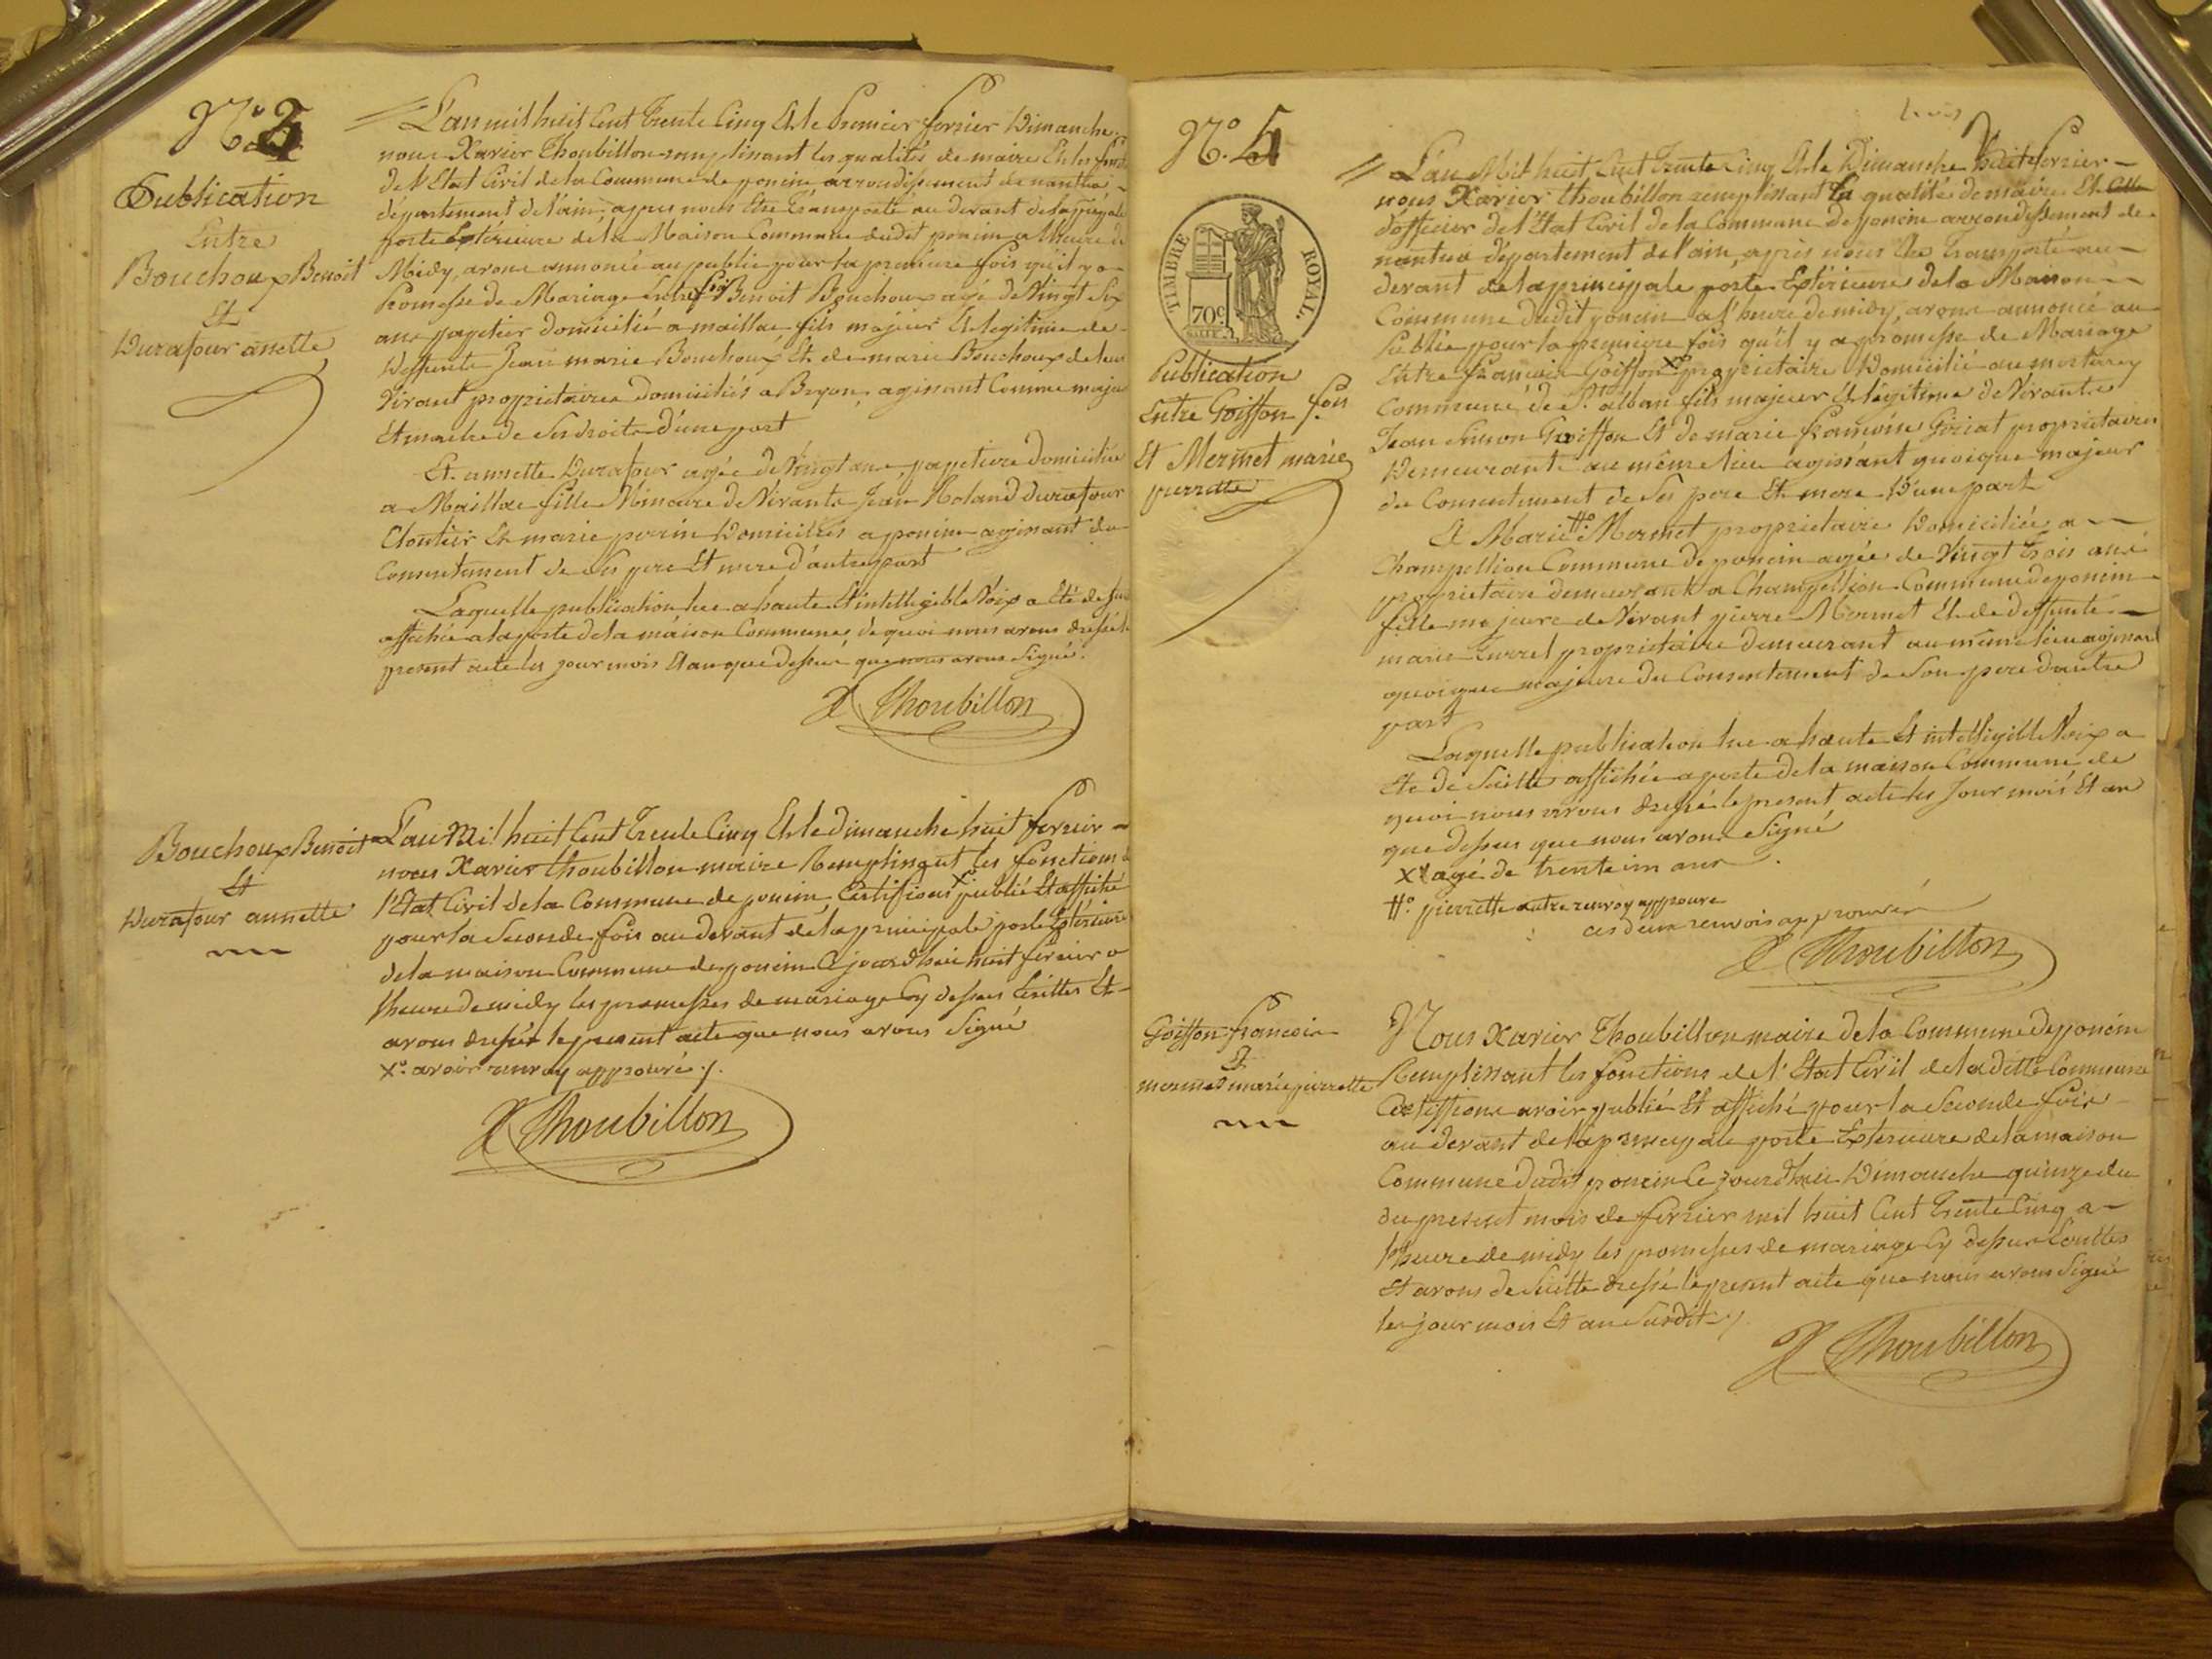 N.o 3
Publication
Entre
Bouchoux Benoit
Et
Durafour anette
L'an mil huit Cent Trente Cinq Et le Premier fevrier Dimanche
nous Xavier Thoubillon remplissant les qualités de maire Et les fonct
de l'Etat Civil de la Commune de poncin arrondissement de nantua
département de l'ain, apres nous Etre Transporté au devant de la ppale
porte Extérieure de la Maison Commune dudit poncin a l'heure de
Midy, avons annoncé au public pour la premiere fois qu'il y a
Promesse de Mariage Entre Benoit Bouchoux agé de Vingt Six
ans papetier domicilié a maillac fils majeur Et legitime de
Deffunte Jean marie Bouchoux Et de marie Bouchoux de leur
Vivant proprietaires domiciliés a Bryon, agissant Comme majeur
Et maitre de Ses droits d'une part
Et annette Durafour agée de Vingt ans papetiere domiciliée
a Maillac fille Mineure de Vivants Jean Roland durafour
Cloutier Et marie perrin Domiciliés a poncin agissant du
Consentement de Ses pere Et mere d'autre part
Laquelle publication lue a haute Et intelligible Voix a Eté de suite
affichée a la porte de la maison Commune, de quoi nous avons dressé le
present acte les jour mois Et an que dessus que nous avons Signé.
X Thoubillon
Bouchoux Benoit
Et
Durafour annette
L'an Mil huit Cent Trente Cinq Et le dimanche huit fevrier
nous Xavier Thoubillon maire Remplissant les fonctions de
l'Etat Civil de la Commune de poncin Certifions x publié Et affiché
pour la Seconde fois au devant de la principale porte Extérieure
de la maison Commune de poncin Ce jourdhui huit fevrier a
l'heure de midy les promesses de mariage Cy dessus Ecrittes Et
avons dressé le present acte que nous avons Signé
x.o avoir renvoy approuvé ./.
X Thoubillon
N.o 4
TIMBRE ROYAL.
70c
Publication
Entre Goiffon f.ois
Et Mermet marie
pierrette
L'an Mil huit Cent Trente Cinq Et le Dimanche huit fevrier
nous Xavier Thoubillon remplissant la qualité de maire Et
d'officier de l'Etat Civil de la Commune de poncin arrondissement de
nantua département de l'ain, après nous Etre Transporté au
devant de la principale porte Extérieure de la Maison
Commune dudit poncin a l'heure de midy, avons annoncé au
Public pour la premiere fois qu'il y a promesse de Mariage
Entre francois Goiffon x.o proprietaire Domicilié au mortarey
Commune de S.t alban fils majeur Et légitime de Vivants
Jean Simon Goiffon Et de marie francoise Giriat proprietaires
Demeurants au même lieu agissant quoique majeur
du Consentement de Ses pere Et mere D'une part
Et Marie #.o Mermet proprietaire Domiciliée a
Champellion Commune de poncin agée de Vingt Trois ans
proprietaire demeurant a Champellion Commune de poncin
fille majeure de Vivant pierre Mermet Et de deffunte
marie Jurret proprietaire demeurant au même lieu agissant
quoique majeure du Consentement de Son pere d'autre
part
Laquelle publication lue a haute Et intelligible Voix a
Ete de Suitte affichée a porte de la maison Commune de
quoi nous avons dressé le present acte les Jour mois Et an
que dessus que nous avons Signé
x.o agé de trente un ans
#.o pierrette autre renvoy approuvé
ces deux renvois approuvés
X Thoubillon
Goiffon francois
&
mermet marie pierrette
Nous Xavier Thoubillon maire de la Commune de poncin
Remplissant les fonctions de l'Etat Civil de la ditte Commune
Certiffions avoir publié Et affiché pour la Seconde fois
au devant de la principale porte Exterieure de la maison
Commune dudit poncin Ce jourdhui Dimanche quinze du
du present mois de fevrier mil huit Cent Trente Cinq a
l'heure de midy les promesses de mariage Cy dessus
Et avons de Suitte dressé le present acte que nous avons Signé
les jour mois Et an Susdit ./.
X Thoubillon